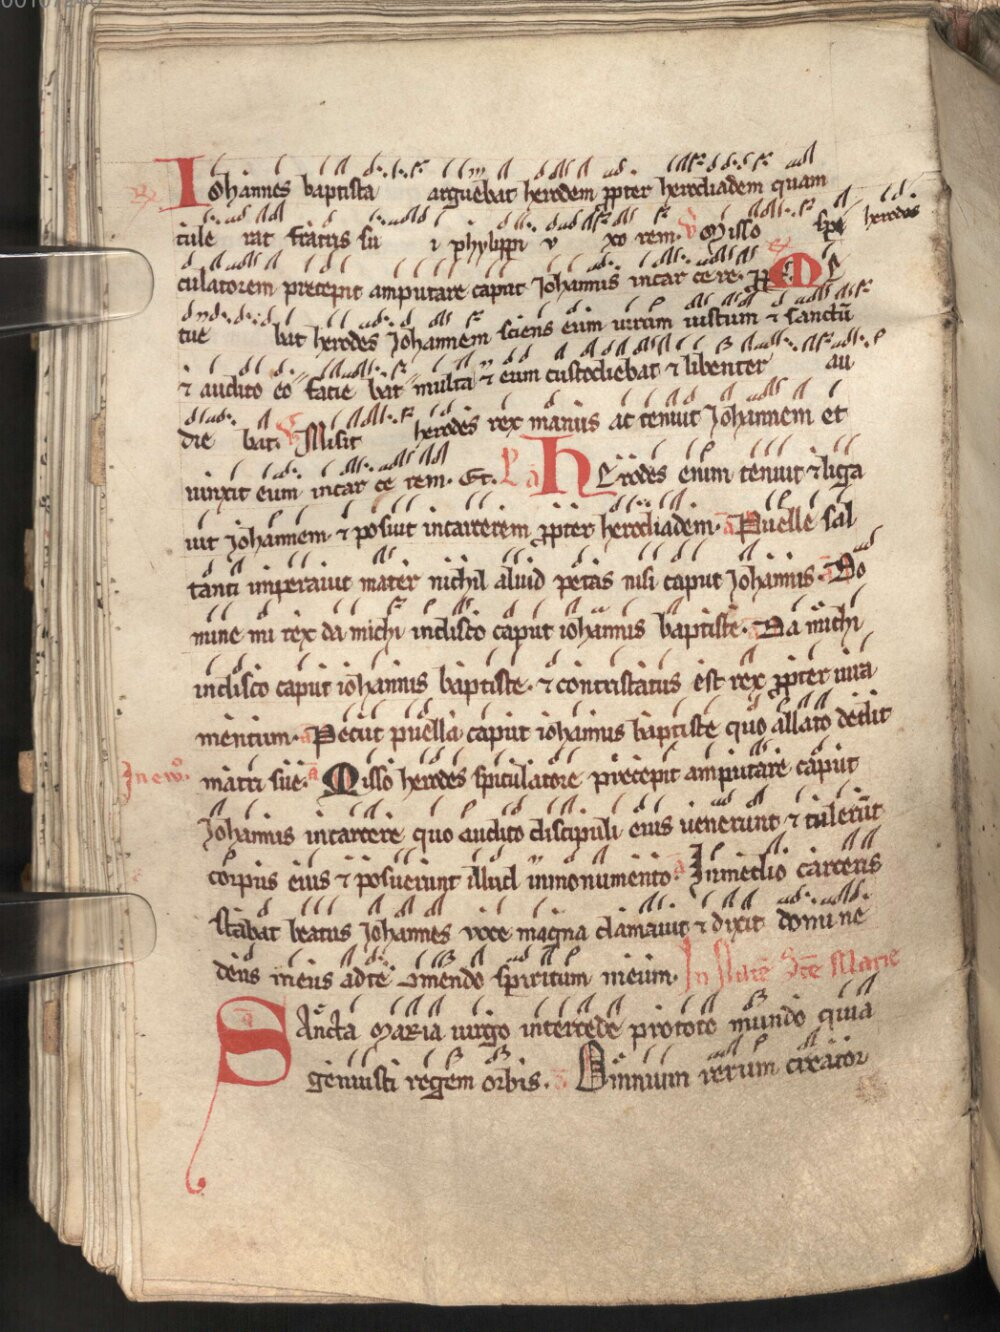 Iohannes baptista arguebat herodem ꝓpter herodiadem quam
tule rat fratris su i phylippi v xo rem. V Misso herodes spe
culatorem precepit amputare caput Johannis incar ce re. Me
tue bat herodes Johannem sciens eum uirum iustum ⁊ sanctū
⁊ audito eo facie bat multa ⁊ eum custodiebat ⁊ libenter au
die bat. V Misit herodes rex manus ac tenuit Johannem et
uinxit eum incar ce rem. Et. Herodes enim tenuit ⁊ liga
uit Johannem ⁊ posuit incarcerem ꝓpter herodiadem. a Puelle sal
tanti imperauit mater nichil aliud petas nisi caput Johannis. a Do
mine mi rex da michi indisco caput iohannis baptiste. a Da michi
indisco caput iohannis baptiste. ⁊ contristatus est rex ꝓpter iura
mentum. a Petiit puella caput iohannis baptiste quo allato dedit
Jn ew̄. matri sue. a Misso herodes spiculatore precepit amputare caput
Johannis incarcere quo audito discipuli eius uenerunt ⁊ tulerūt
corpus eius ⁊ posuerunt illud inmonumento. a Jnmedio carceris
stabat beatus Johannes voce magna clamauit ⁊ dixit domine
deus meus adte ꝯmendo spiritum meum. In Natē Scē Marie
a Sancta maria uirgo intercede prototo mundo quia
genuisti regem orbis. a Omnium rerum creator